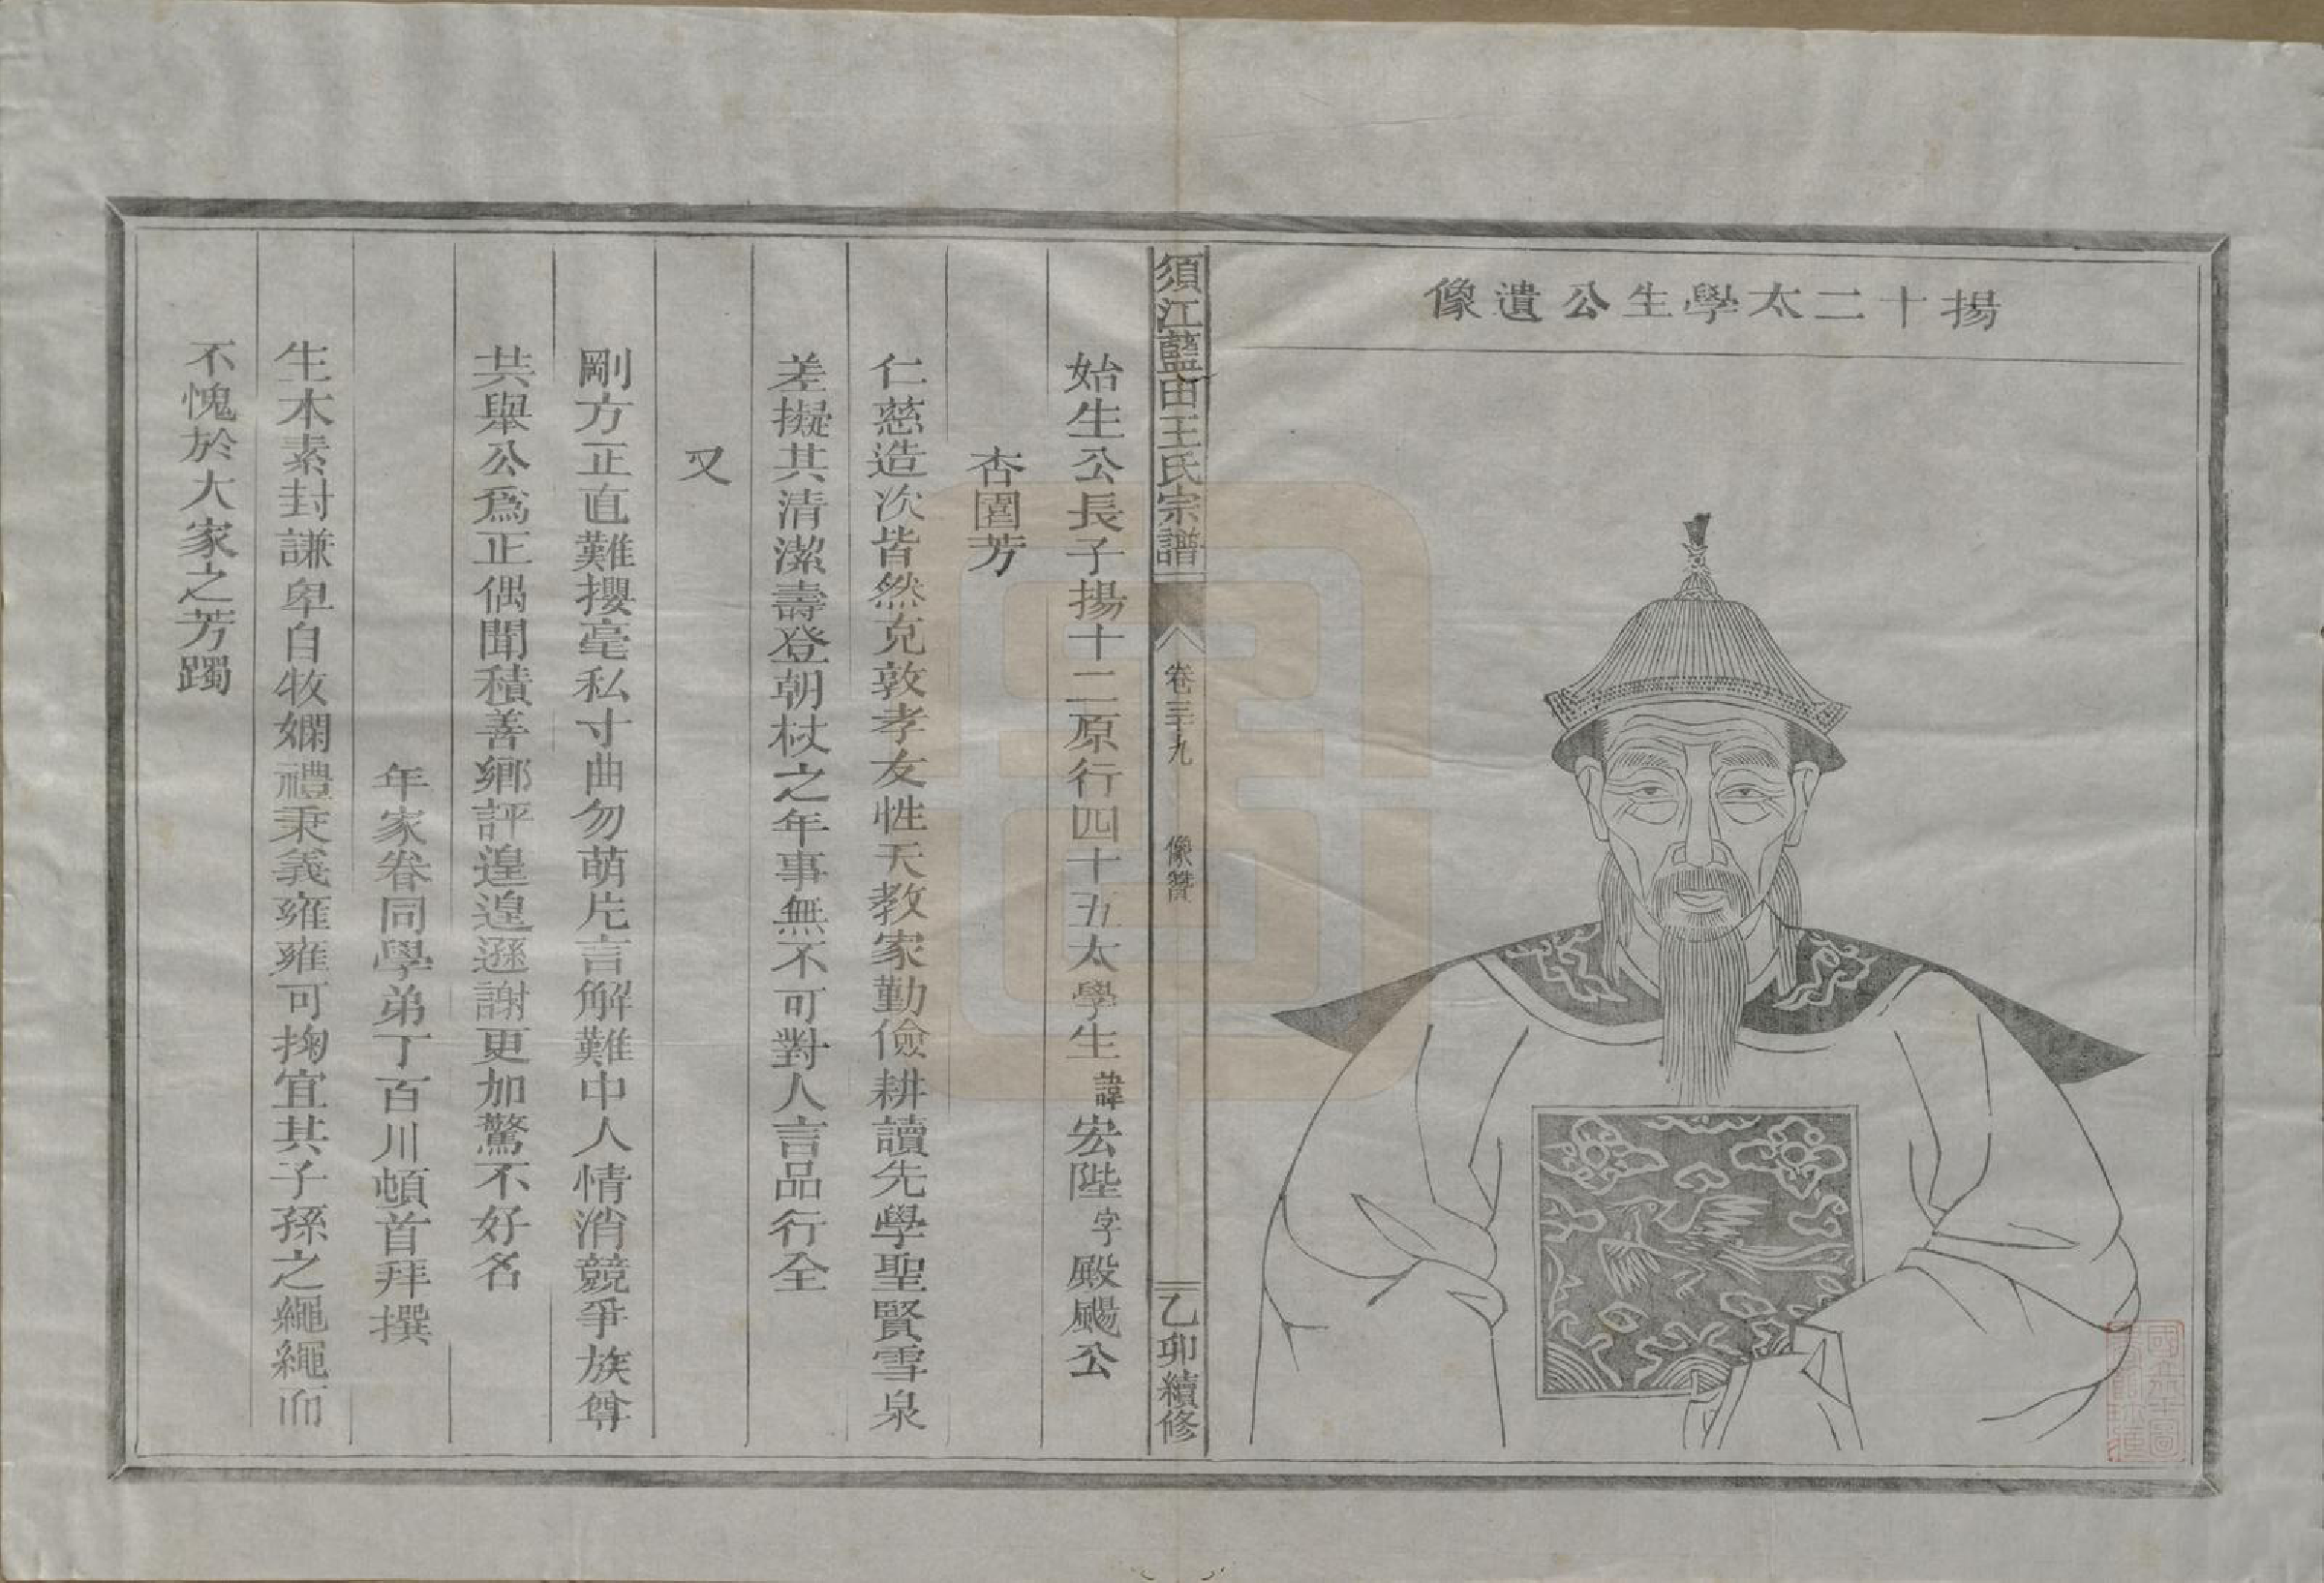 揚十二太學生公遺像
須江藍田王氏宗譜
卷三十九
像贊
乙卯續修
始生公長子揚十二原行四十五太學生諱宏陛字殿颺公
杏園芳
仁慈造次皆然克敦孝友性天教家勤儉耕讀先學聖賢雪泉
差擬其清潔壽登朝杖之年事無不可對人言品行全
又
剛方正直難攖毫私寸曲勿萌片言解難中人情消競爭族尊
共舉公為正偶聞積善鄉評遑遑遜謝更加驚不好名
年家眷同學弟丁百川頓首拜撰
生木素封謙卑自牧嫻禮秉義雍雍可掬宜其子孫之繩繩而
不愧於大家之芳躅